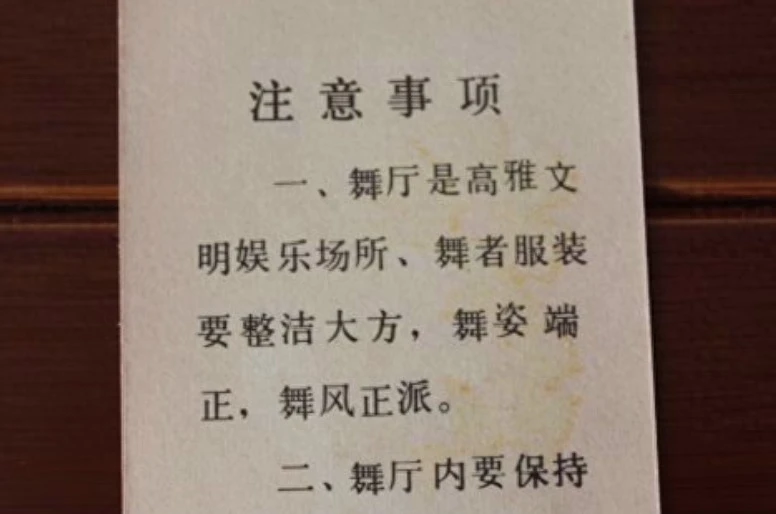 注意事项
一、舞厅是高雅文
明娱乐场所、舞者服装
要整洁大方，舞姿端
正，舞风正派。
二、舞厅内要保持